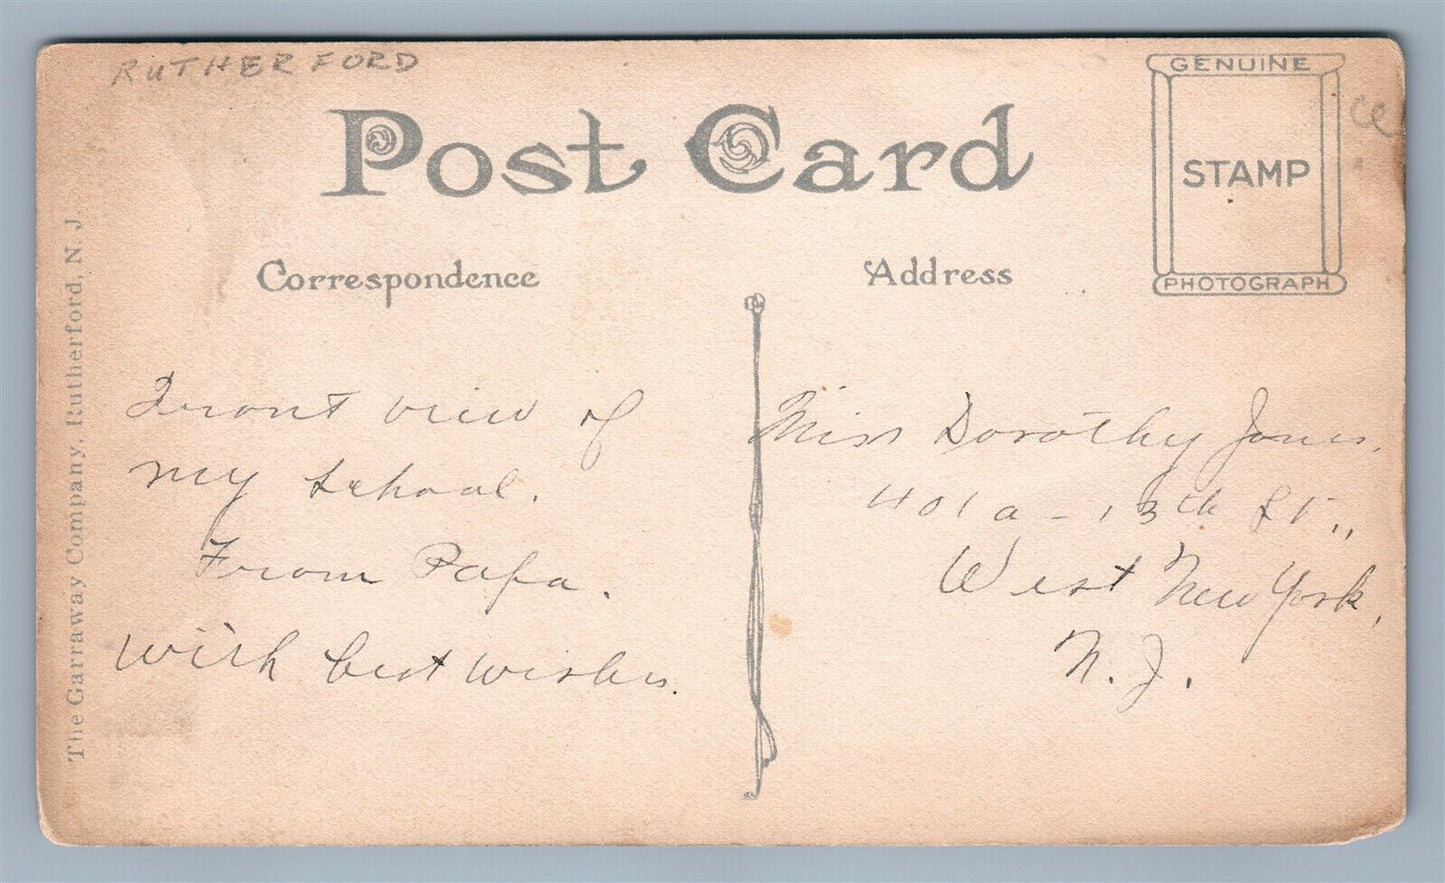 RUTHERFORD
Post Card
GENUINE
STAMP
PHOTOGRAPH
Correspondence
Address
The Garraway Company, Rutherford, N. J
Front view of
my school.
From Papa.
With best wishes.
Miss Dorothy Jones,
401a - 13th St.,
West New York,
N. J.